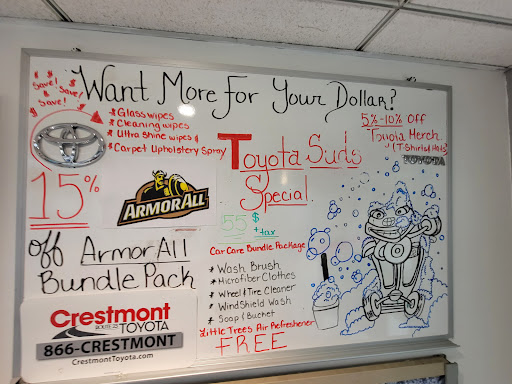 Want More For Your Dollar?
Save!
Save!
Save!
* Glasswipes
* Cleaning wipes
* Ultra shine wipes &
* Carpet Upholstery Spray
15%
ARMOR ALL
off ArmorAll
Bundle Pack
Crestmont
ROUTE 23 TOYOTA
866-CRESTMONT
CrestmontToyota.com
Toyota Suds
Special
55$
+tax
Car Care Bundle Package
* Wash Brush
* Microfiber Clothes
* Wheel & Tire Cleaner
* Windshield Wash
* Soap & Bucket
Little Trees Air Refreshener
FREE
5%-10% OFF
Toyota Merch
TOYOTA